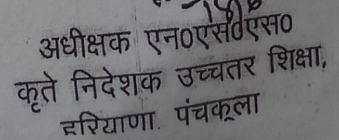 अधीक्षक एन०एस०एस०
कृते निदेशक उच्चतर शिक्षा,
हरियाणा. पंचकूला